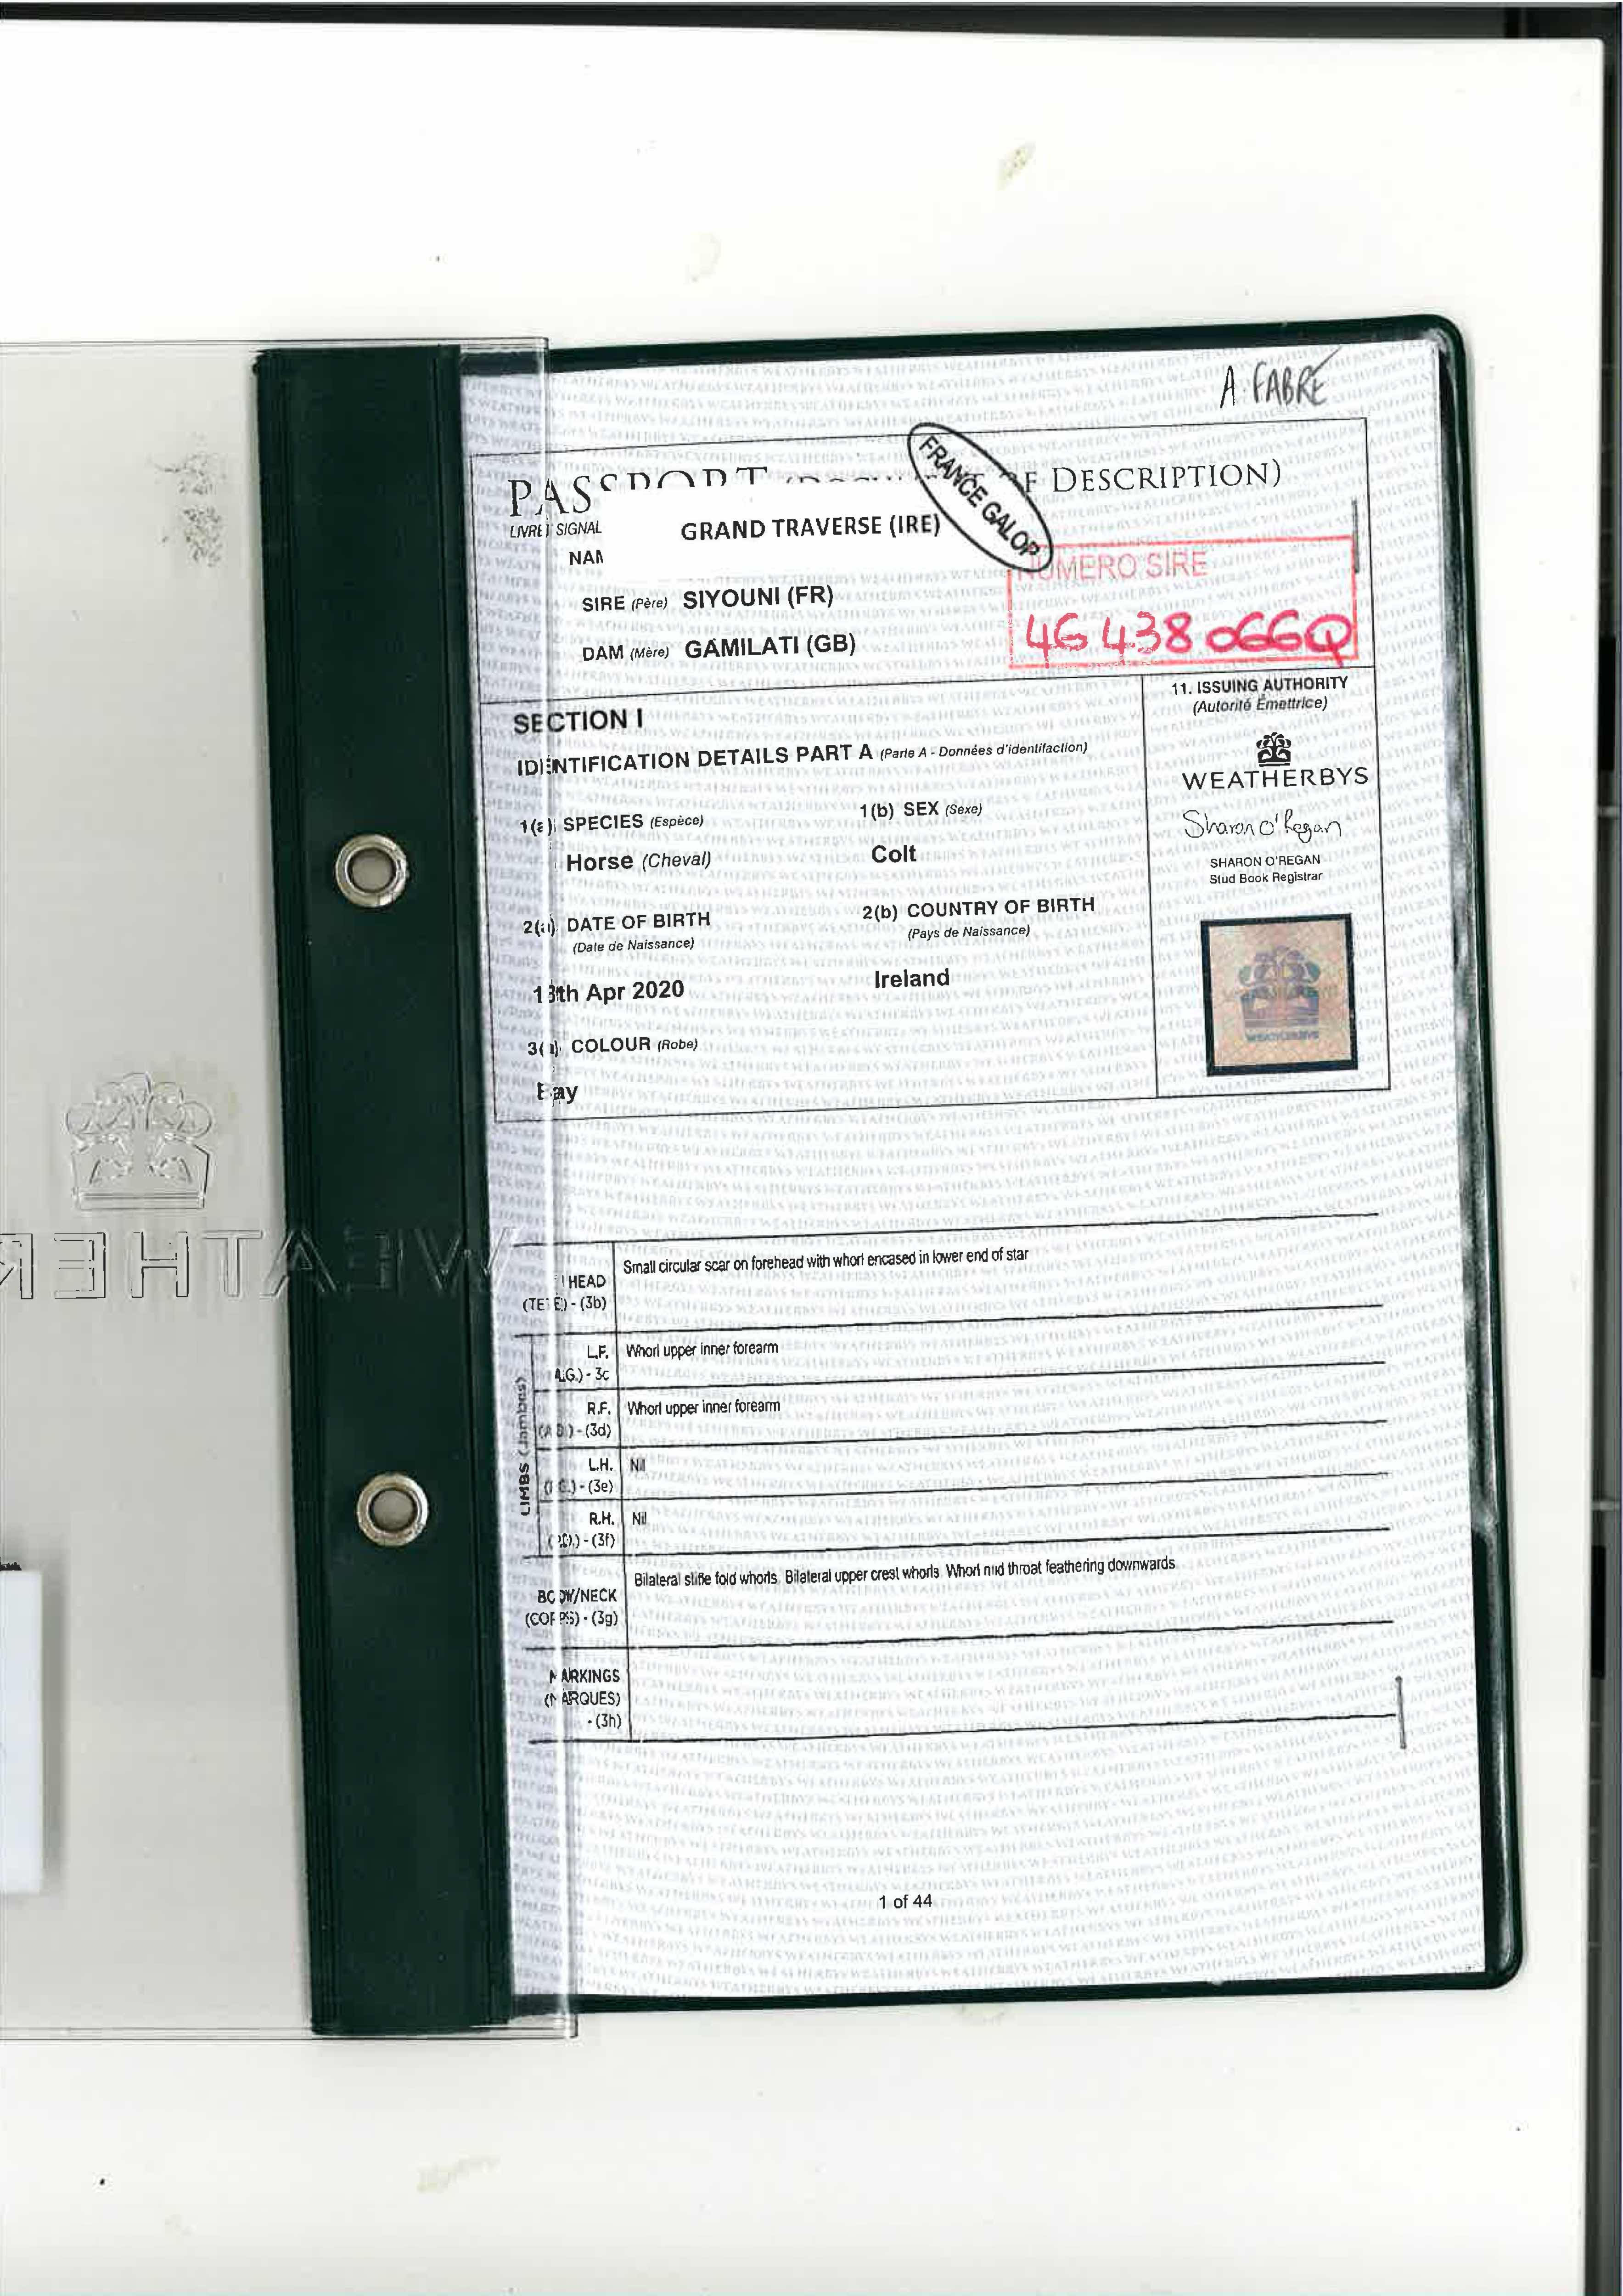 A. FABRE
PASSPORT OF DESCRIPTION)
LIVRET SIGNAL
FRANCE GALOP
GRAND TRAVERSE (IRE)
NAM
NUMERO SIRE
SIRE (Père) SIYOUNI (FR)
DAM (Mère) GAMILATI (GB)
SECTION I
IDENTIFICATION DETAILS PART A (Partie A - Données d'identifaction)
11. ISSUING AUTHORITY
(Autorité Émettrice)
WEATHERBYS
Sharon O'Regan
SHARON O'REGAN
Stud Book Registrar
WEATHERBYS
1(a) SPECIES (Espèce)
1(b) SEX (Sexe)
Horse (Cheval)
Colt
2(a) DATE OF BIRTH
(Date de Naissance)
2(b) COUNTRY OF BIRTH
(Pays de Naissance)
th Apr 2020
Ireland
3(a) COLOUR (Robe)
Bay
HEAD
(TETE) - (3b)
Small circular scar on forehead with whorl encased in lower end of star
LIMBS (Jambes)
L.F.
A.G.) - 3c
Whorl upper inner forearm
R.F.
(A.D.) - (3d)
Whorl upper inner forearm
L.H.
- (3e)
Nil
R.H.
- (3f)
Nil
BODY/NECK
(CORPS) - (3g)
Bilateral stifle fold whorls. Bilateral upper crest whorls. Whorl mid throat feathering downwards.
MARKINGS
(MARQUES)
- (3h)
1 of 44
WEATHER